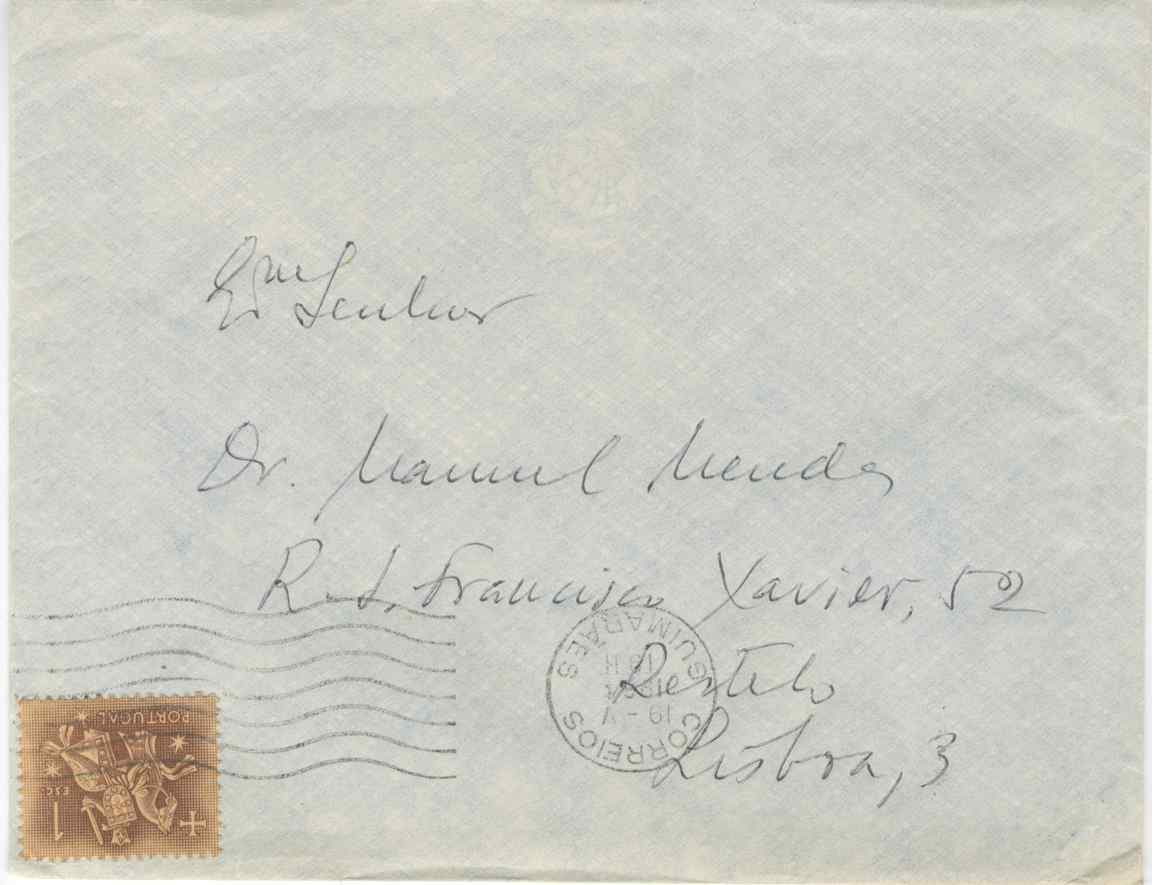 Exmº Senhor
Dr. Manuel Mendes
R. S. Francisco Xavier, 52
Restelo
Lisboa, 3
CORREIOS
GUIMARÃES
19 - V
PORTUGAL
1
ESC.